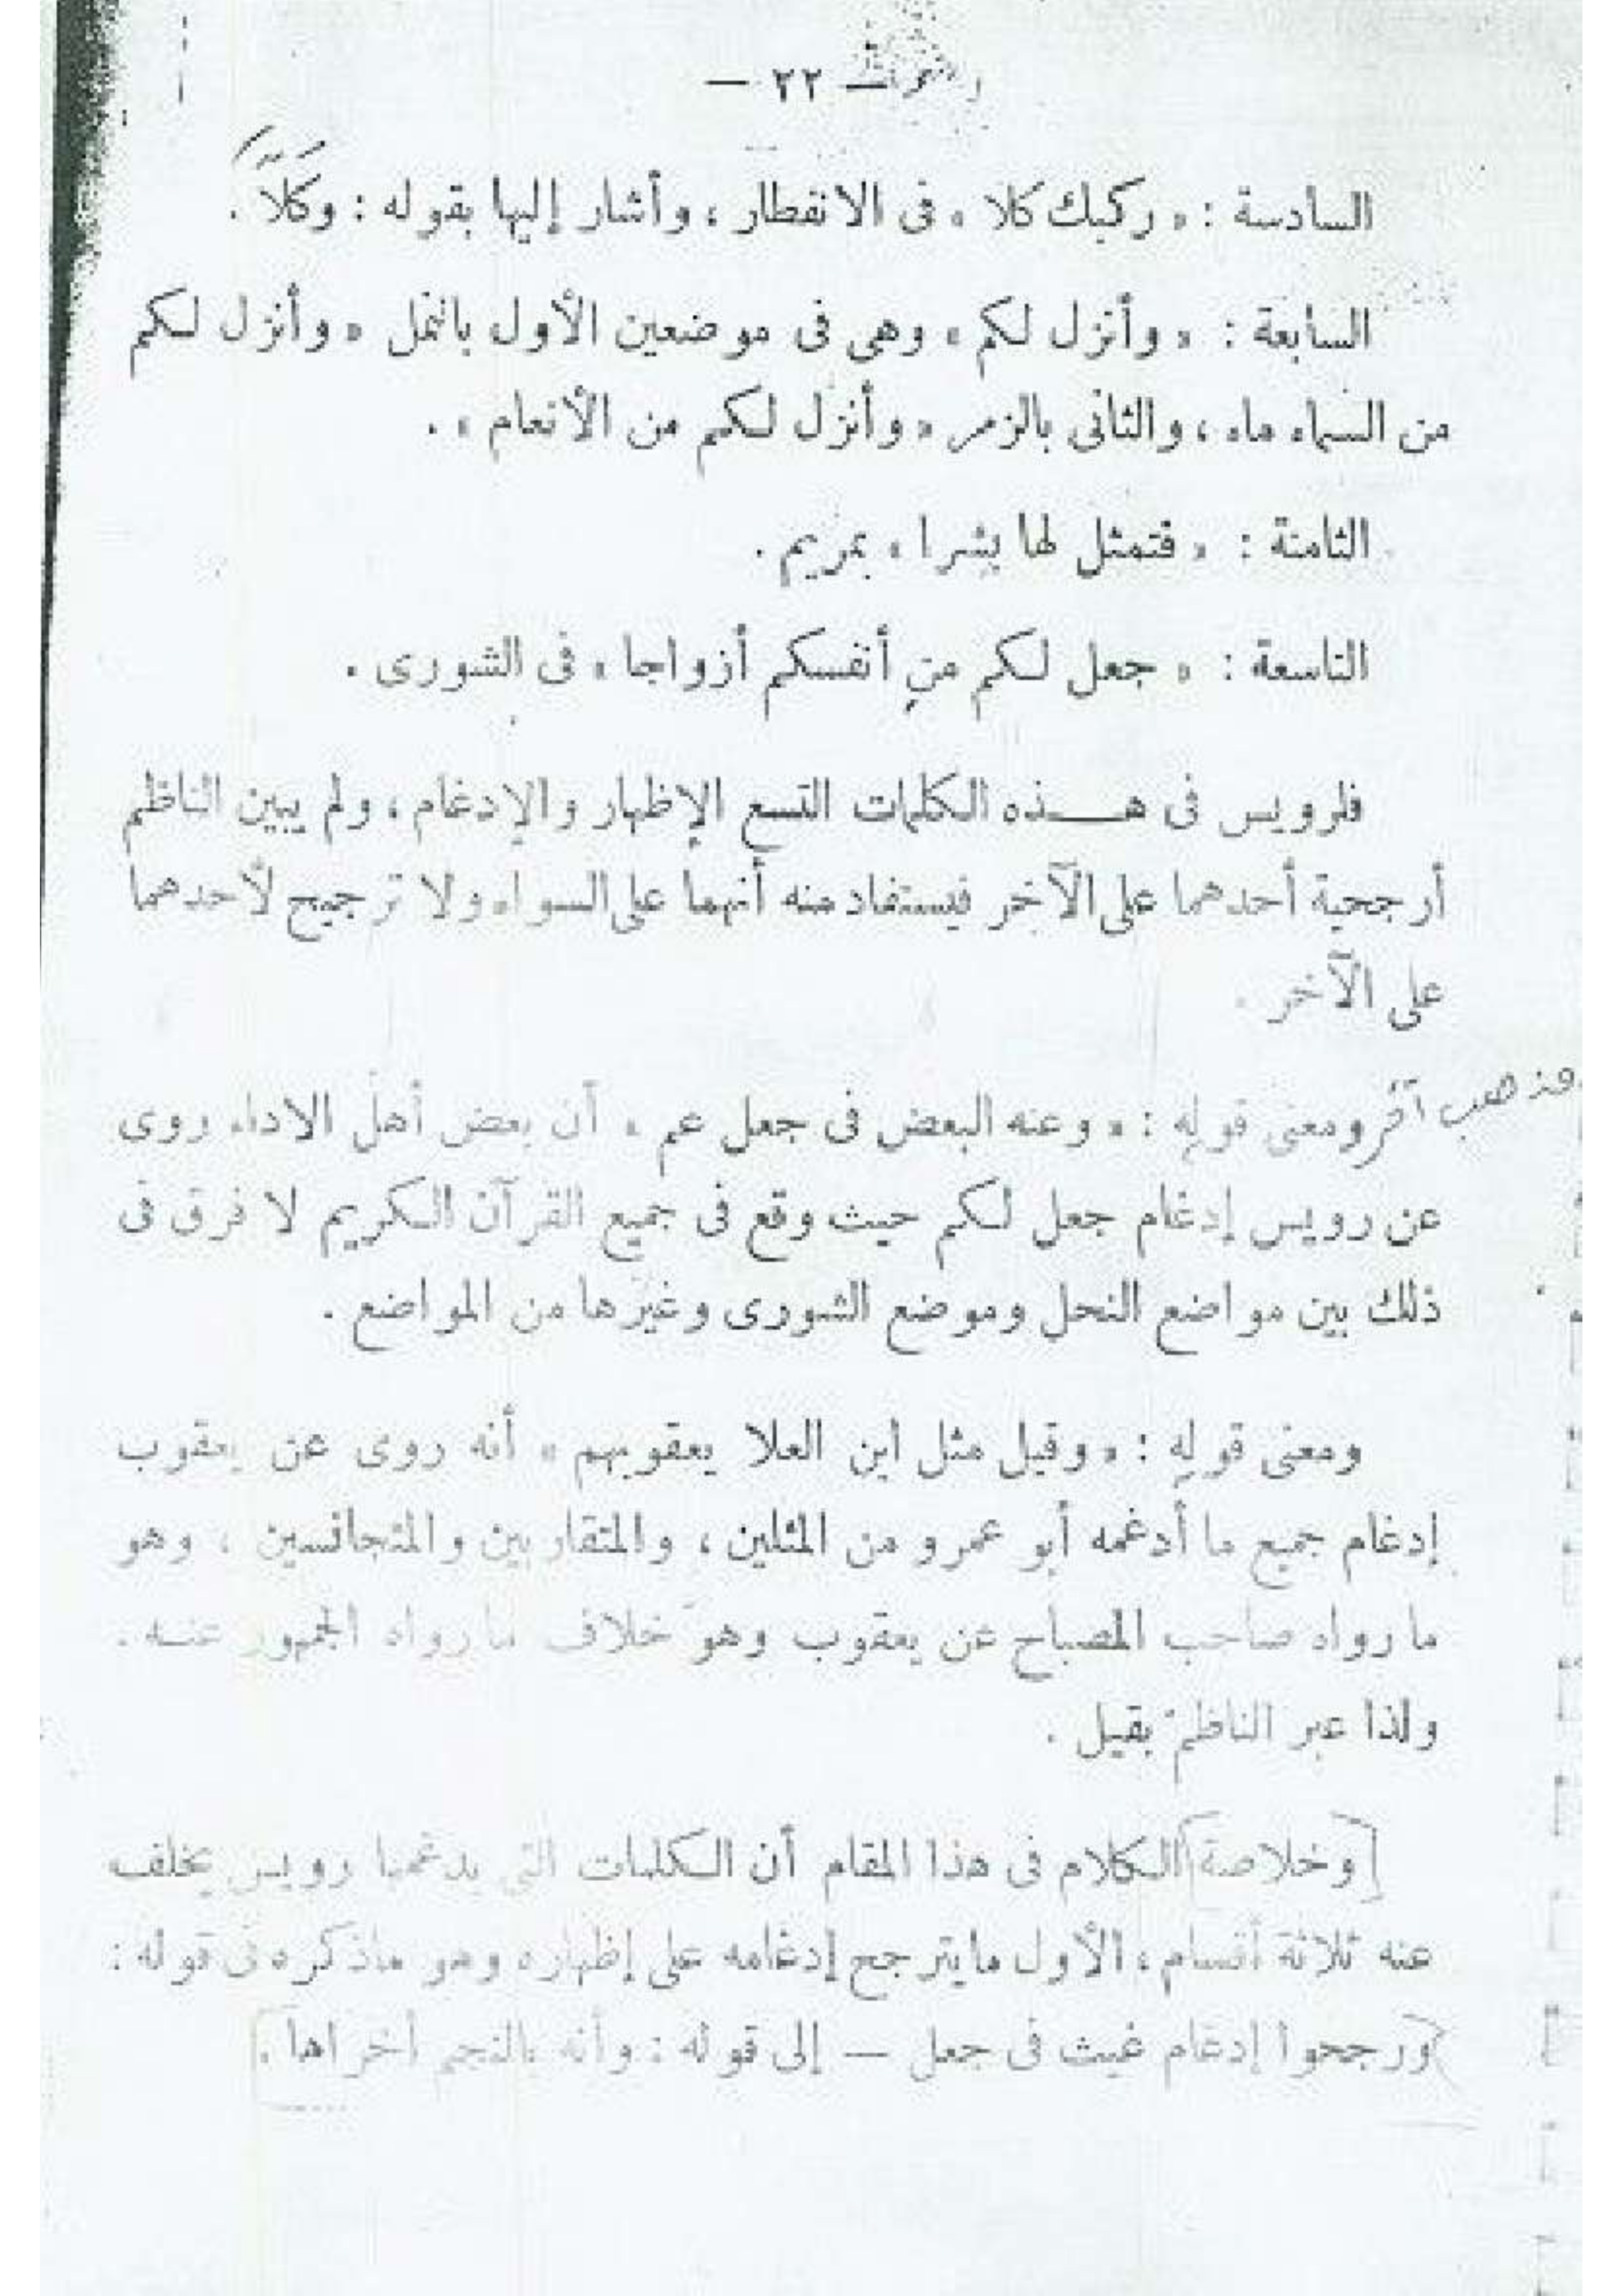 — ٢٢ —
السادسة : « ركبك كلا » فى الانفطار ، وأشار إليها بقوله : وكَلَّا .
السابعة : « وأنزل لكم » وهى فى موضعين الأول بالنمل « وأنزل لكم
من السماء ماء ، والثانى بالزمر « وأنزل لكم من الأنعام » .
الثامنة : « فتمثل لها بشرا » بمريم .
التاسعة : « جعل لكم من أنفسكم أزواجا » فى الشورى .
فلرويس فى هـذه الكلمات التسع الإظهار والإدغام ، ولم يبين الناظم
أرجحية أحدهما على الآخر فيستفاد منه أنهما على السواء ولا ترجيح لأحدهما
على الآخر .
مذهب آخر
ومعنى قوله : « وعنه البعض فى جعل عم » أن بعض أهل الاداء روى
عن رويس إدغام جعل لكم حيث وقع فى جميع القرآن الكريم لا فرق فى
ذلك بين مواضع النحل وموضع الشورى وغيرها من المواضع .
ومعنى قوله : « وقيل مثل ابن العلا يعقوبهم » أنه روى عن يعقوب
إدغام جميع ما أدغمه أبو عمرو من المثلين ، والمتقاربين والمتجانسين ، وهو
ما رواه صاحب المصباح عن يعقوب وهو خلاف ما رواه الجمهور عنه .
ولذا عبر الناظم بقيل .
[وخلاصة] الكلام فى هذا المقام أن الكلمات التى يدغمها رويس بخلف
عنه ثلاثة أقسام ، الأول ما يترجح إدغامه على إظهاره وهو ماذكره فى قوله :
ورجحوا إدغام غيث فى جعل — إلى قوله : وأنه بالنجم أخراها .